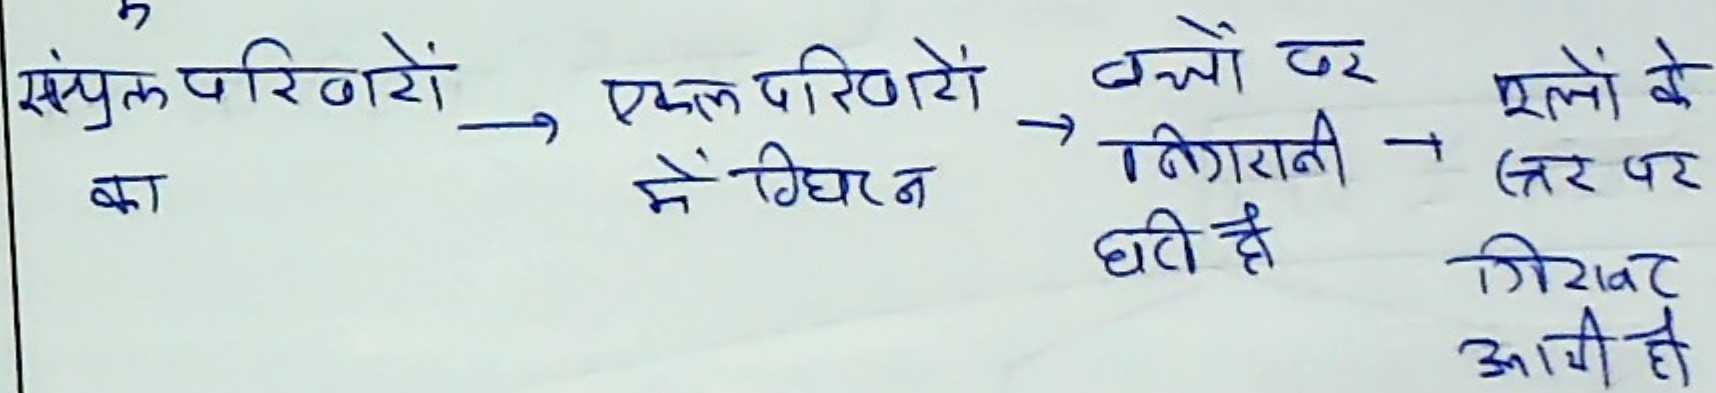 संयुक्त परिवारों का
→ एकल परिवारों में विघटन
→ बच्चों पर निगरानी घटी है
→ मूल्यों के स्तर पर गिरावट आयी है